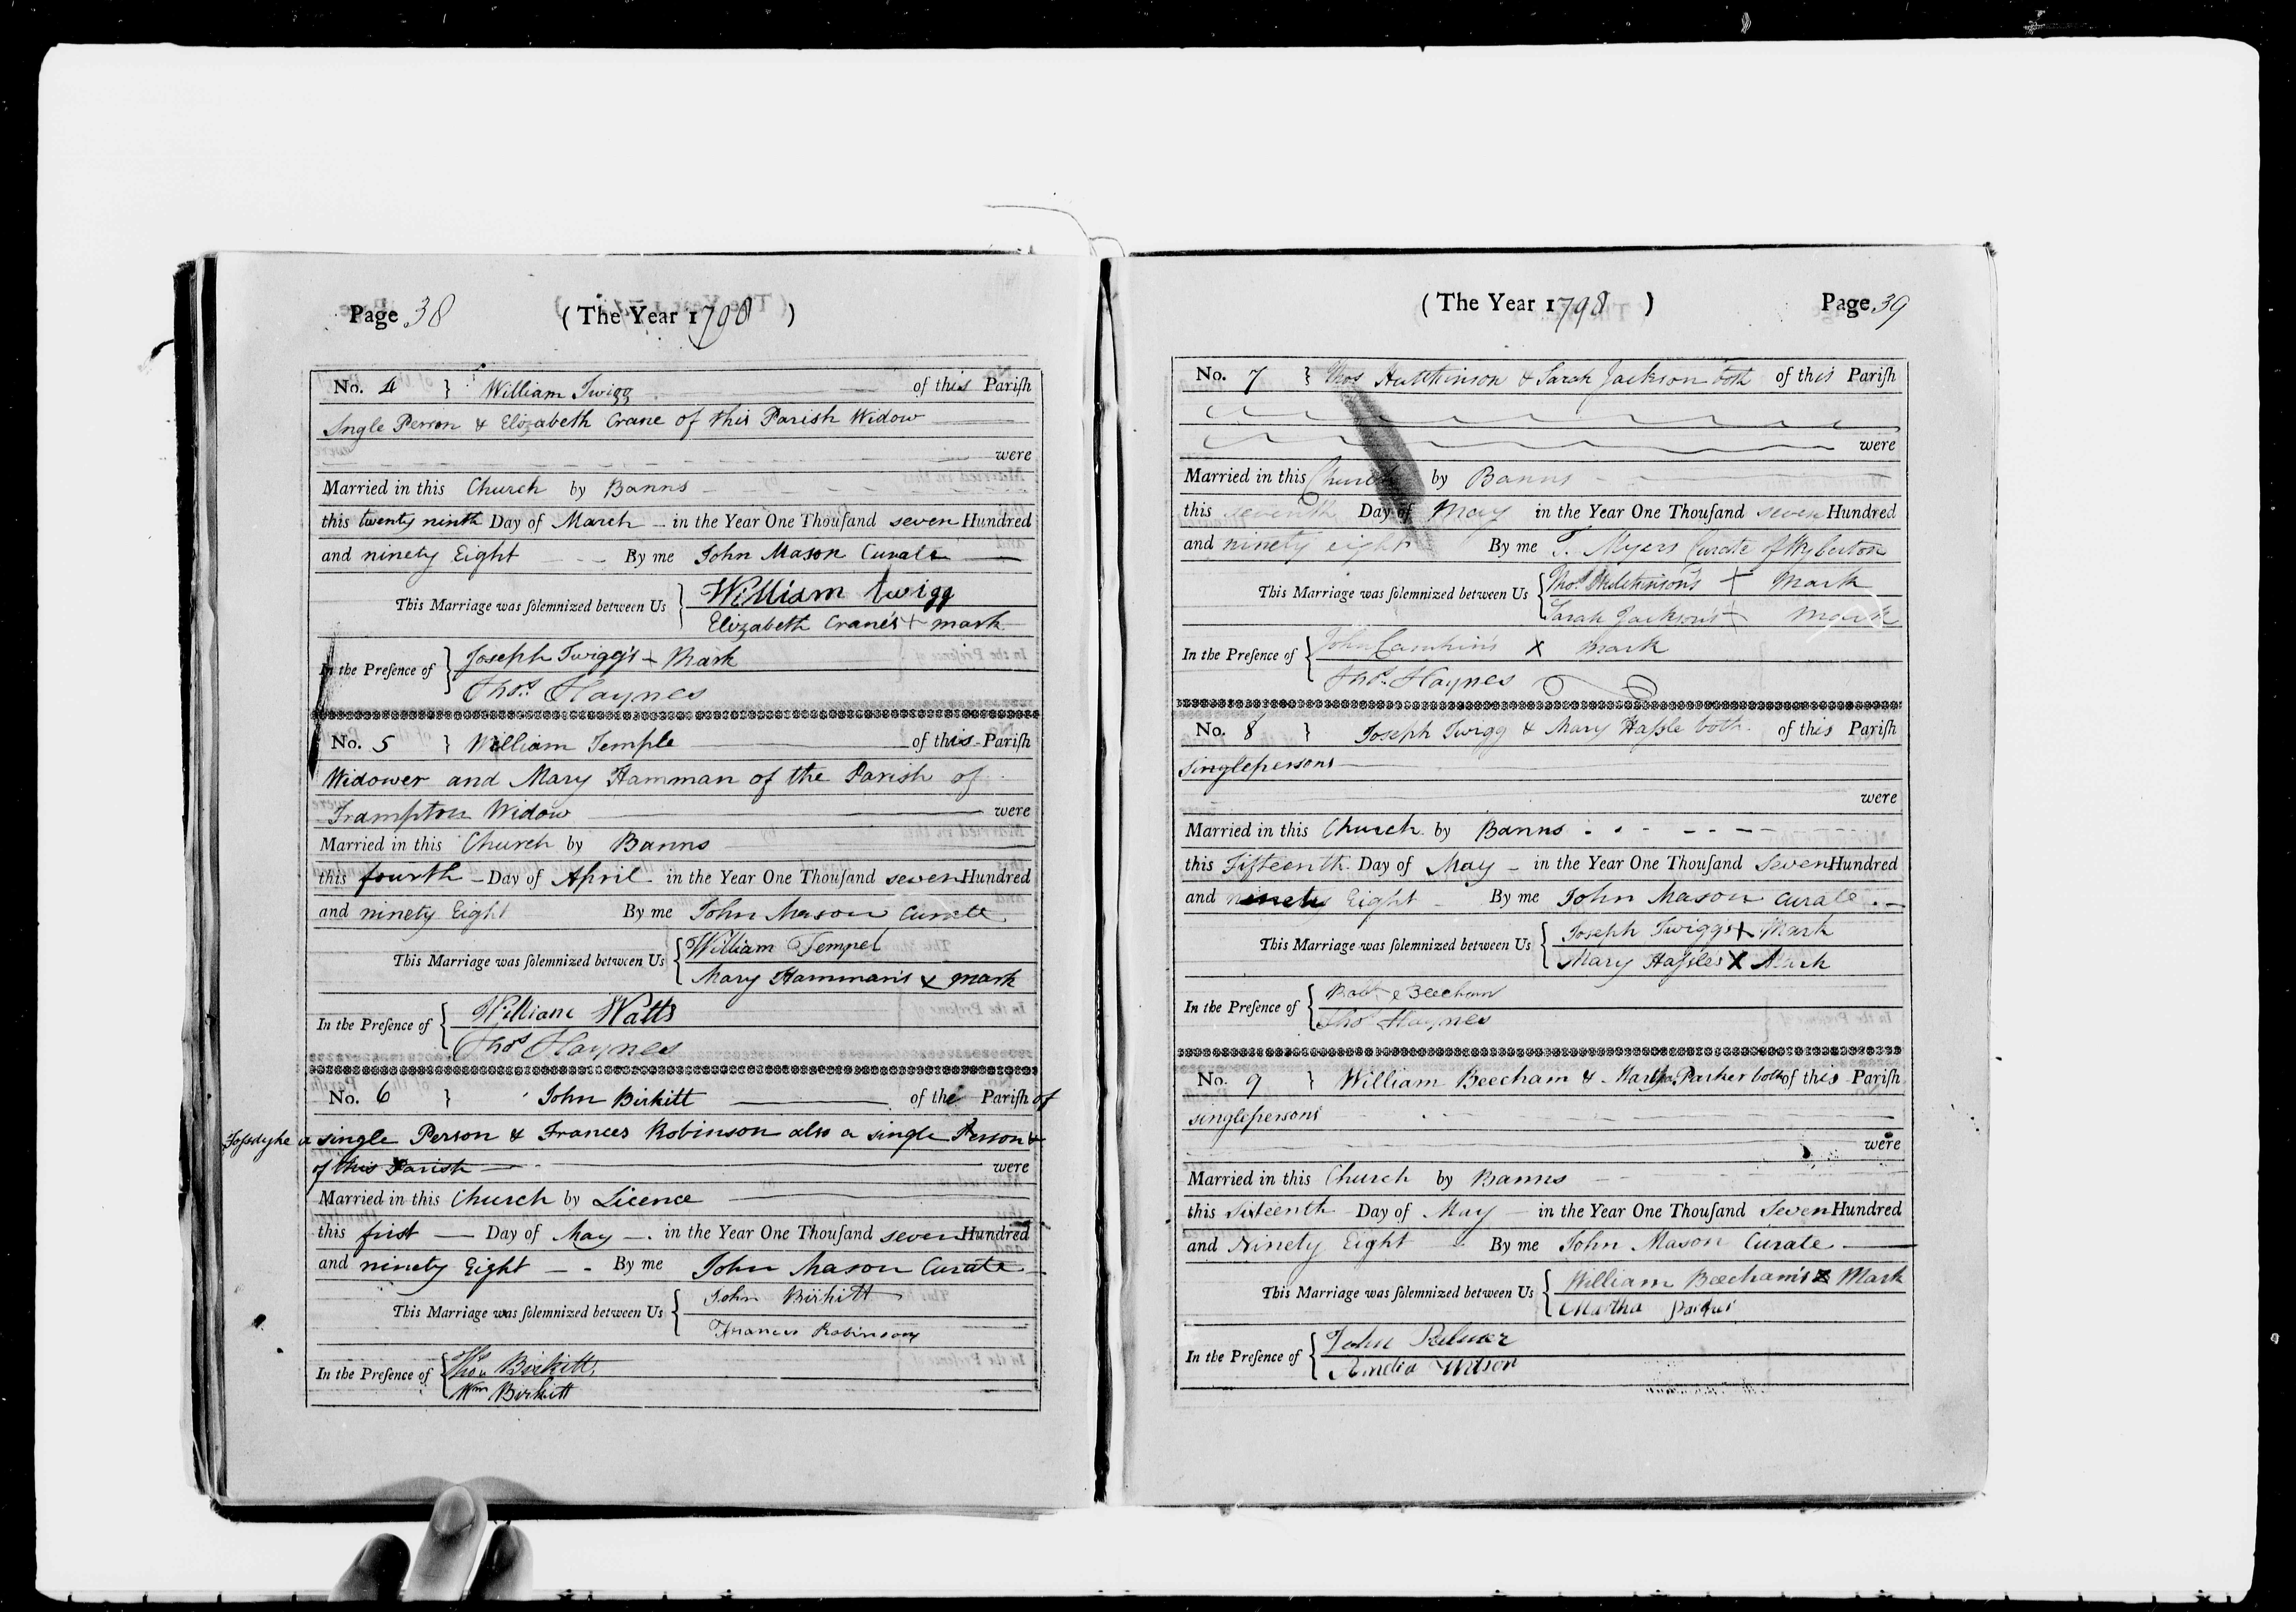 Page 38 (The Year 1798)
No. 4 } William Twigg of this Pariſh
Single Person & Elizabeth Crane of this Parish Widow
were
Married in this Church by Banns
this twenty ninth Day of March in the Year One Thouſand seven Hundred
and ninety Eight By me John Mason Curate
This Marriage was ſolemnized between Us { William twigg
Elizabeth Crane's + mark
In the Preſence of } Joseph Twigg's + Mark
Thos. Haynes
No. 5 } William Temple of this Pariſh
Widower and Mary Hamman of the Parish of
Frampton Widow were
Married in this Church by Banns
this fourth Day of April in the Year One Thouſand seven Hundred
and ninety Eight By me John Mason Curate
This Marriage was ſolemnized between Us { William Tempel
Mary Hamman's x mark
In the Preſence of { William Watts
Thos Haynes
No. 6 } John Birkitt of the Pariſh of
Fosdyke a single Person & Frances Robinson also a single Person &
of this Parish were
Married in this Church by Licence
this first Day of May in the Year One Thouſand seven Hundred
and ninety Eight By me John Mason Curate
This Marriage was ſolemnized between Us { John Birkitt
Frances Robinson
In the Preſence of { Birkitt
Wm Birkitt
(The Year 1798) Page 39
No. 7 } Thos Hutchinson & Sarah Jackson both of this Pariſh
were
Married in this Church by Banns
this seventh Day of May in the Year One Thouſand seven Hundred
and ninety eight By me T. Myers Curate of Wyberton
This Marriage was ſolemnized between Us { Thos. Hutchinson's + Mark
Sarah Jackson's + Mark
In the Preſence of { John x mark
Thos. Haynes
No. 8 } Joseph Twigg & Mary Haſsle both of this Pariſh
singlepersons
were
Married in this Church by Banns
this Fifteenth Day of May in the Year One Thouſand Seven Hundred
and ninety Eight By me John Mason Curate
This Marriage was ſolemnized between Us { Joseph Twigg's x Mark
Mary Haſsles X Mark
In the Preſence of { Beecham
Thos Haynes
No. 9 } William Beecham & Martha Parker both of this Pariſh
singlepersons
were
Married in this Church by Banns
this Sixteenth Day of May in the Year One Thouſand Seven Hundred
and Ninety Eight By me John Mason Curate
This Marriage was ſolemnized between Us { William Beecham's x Mark
Martha Parker
In the Preſence of { John Palmer
Amelia Wilson